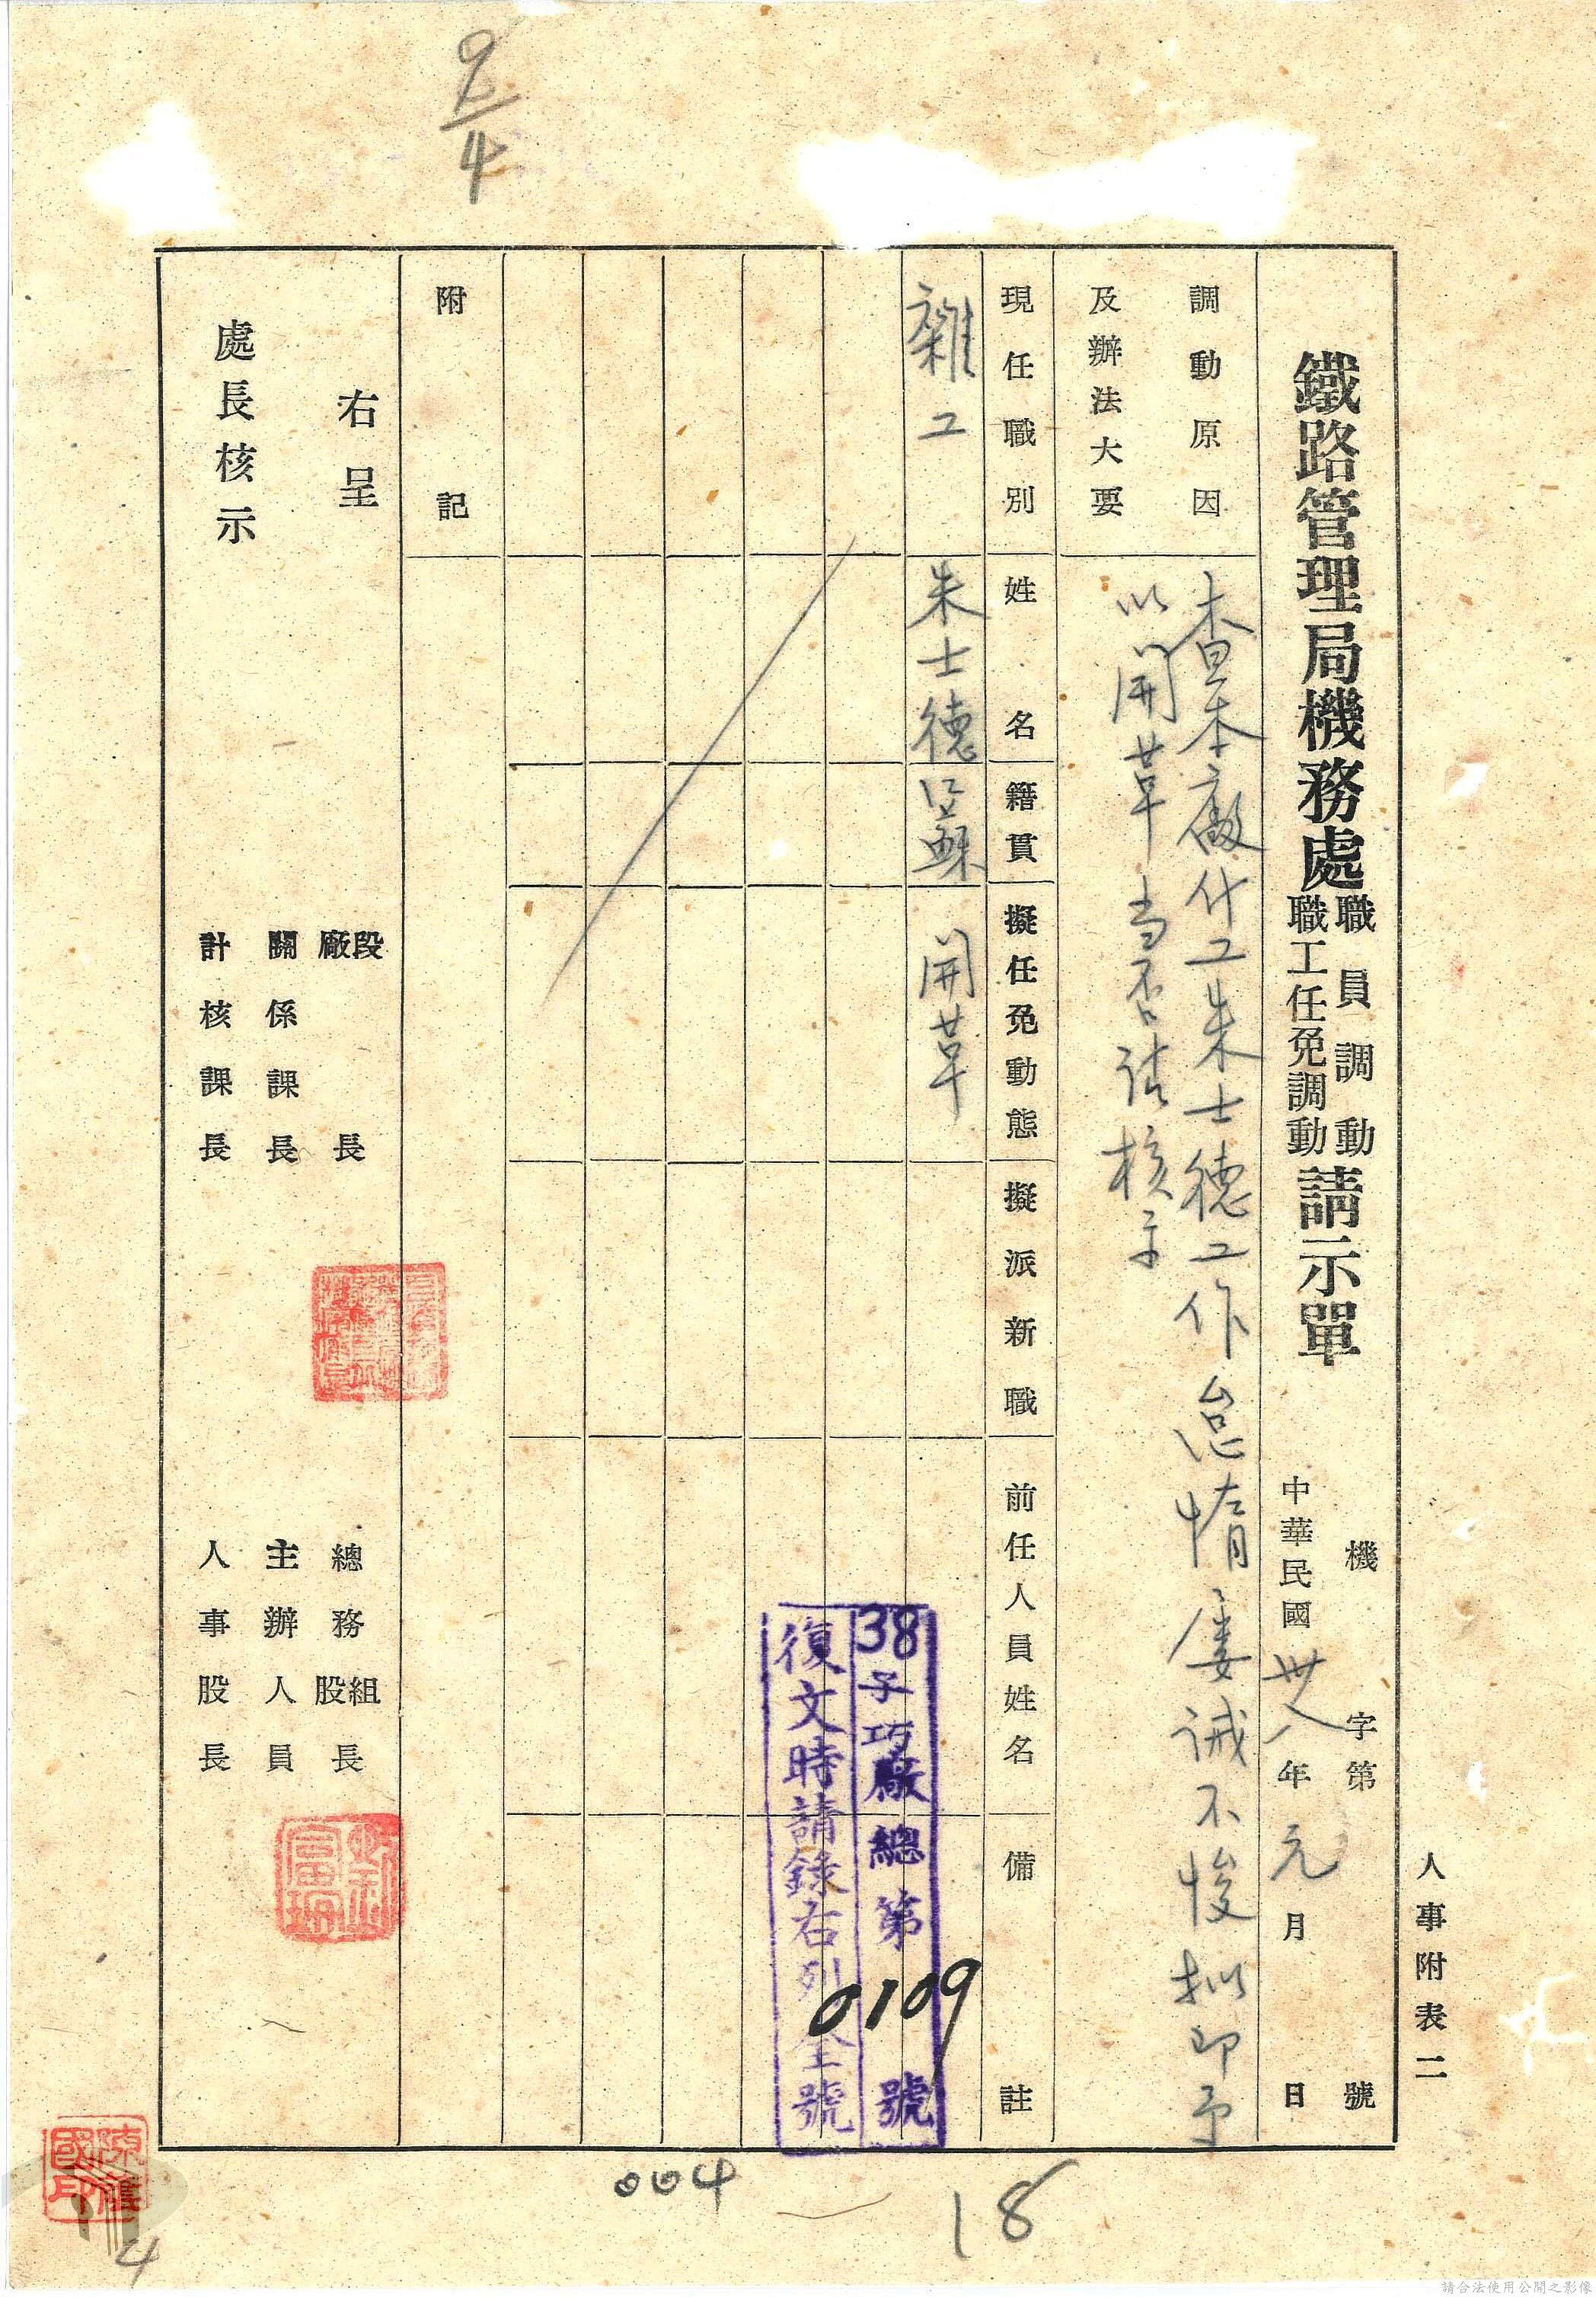 人事附表二
鐵路管理局機務處職員調動請示單
職工任免調動
機字第號
中華民國卅八年元月日
調動原因
及辦法大要
查本廠什工朱士德工作怠惰屡诫不悛拟即予
以開革当否请核示
現任職別
姓名
籍貫
擬任免動態
擬派新職
前任人員姓名
備註
雜工
朱士德
江蘇
開革
38子巧廠總第0109號
復文時請錄右列全號
附記
右呈
處長核示
廠段長
關係課長
計核課長
總務股組長
主辦人員
人事股長
9/4
004
18
4
請合法使用公開之影像